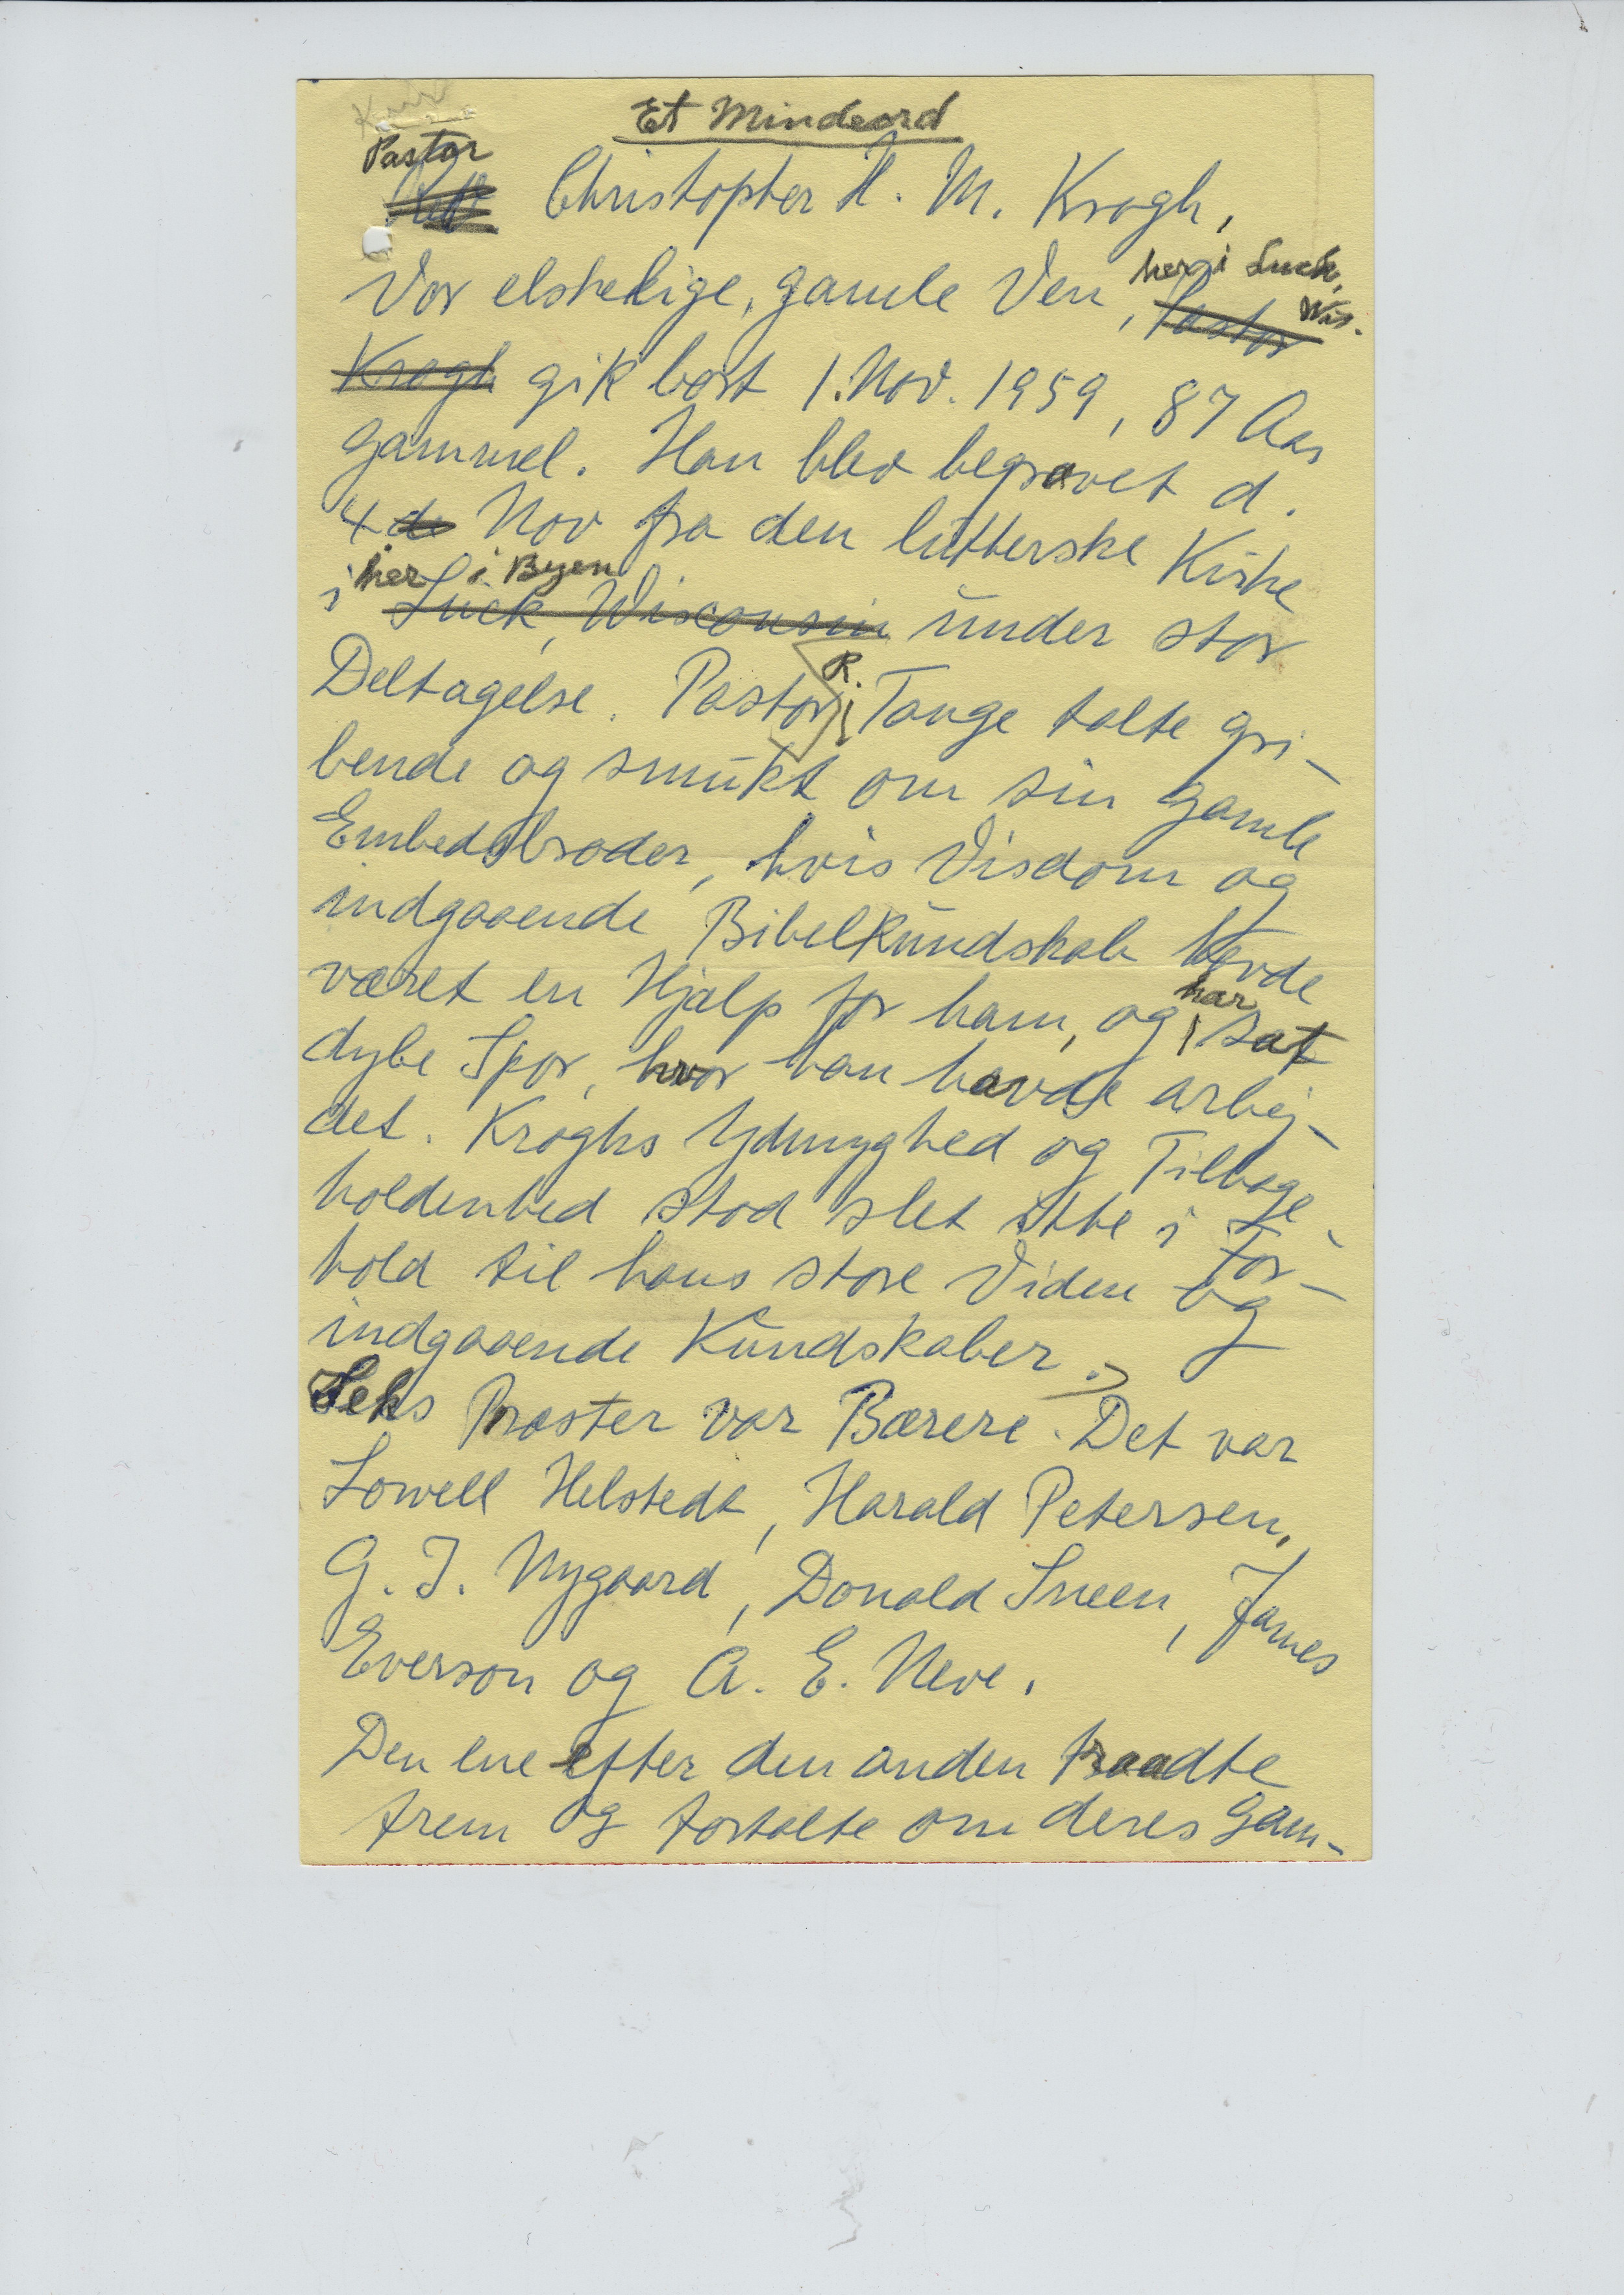 Et Mindeord
Pastor
Christopher H. M. Krogh,
her i Luck,
Wis.
Vor elskelige, gamle Ven, Pastor
Krogh gik bort 1. Nov. 1959, 87 Aar
gammel. Han blev begravet d.
4 de Nov fra den lutterske Kirke
her i Byen
i Luck, Wisconsin under stor
R.
Deltagelse. Pastor Tange talte gri-
bende og smukt om sin gamle
Embedsbroder, hvis Visdom og
indgaaende Bibelkundskab havde
været en Hjælp for ham, og har sat
dybe Spor, hvor han havde arbej-
det. Kroghs Ydmyghed og Tilbage-
holdenhed stod slet ikke i For-
hold til hans store Viden og
indgaaende Kundskaber.
Seks Præster var Bærere. Det var
Lowell Helstedt, Harald Petersen,
G. J. Nygaard, Donald Sneen, James
Everson og A. E. Neve.
Den ene efter den anden traadte
frem og fortalte om deres gam-